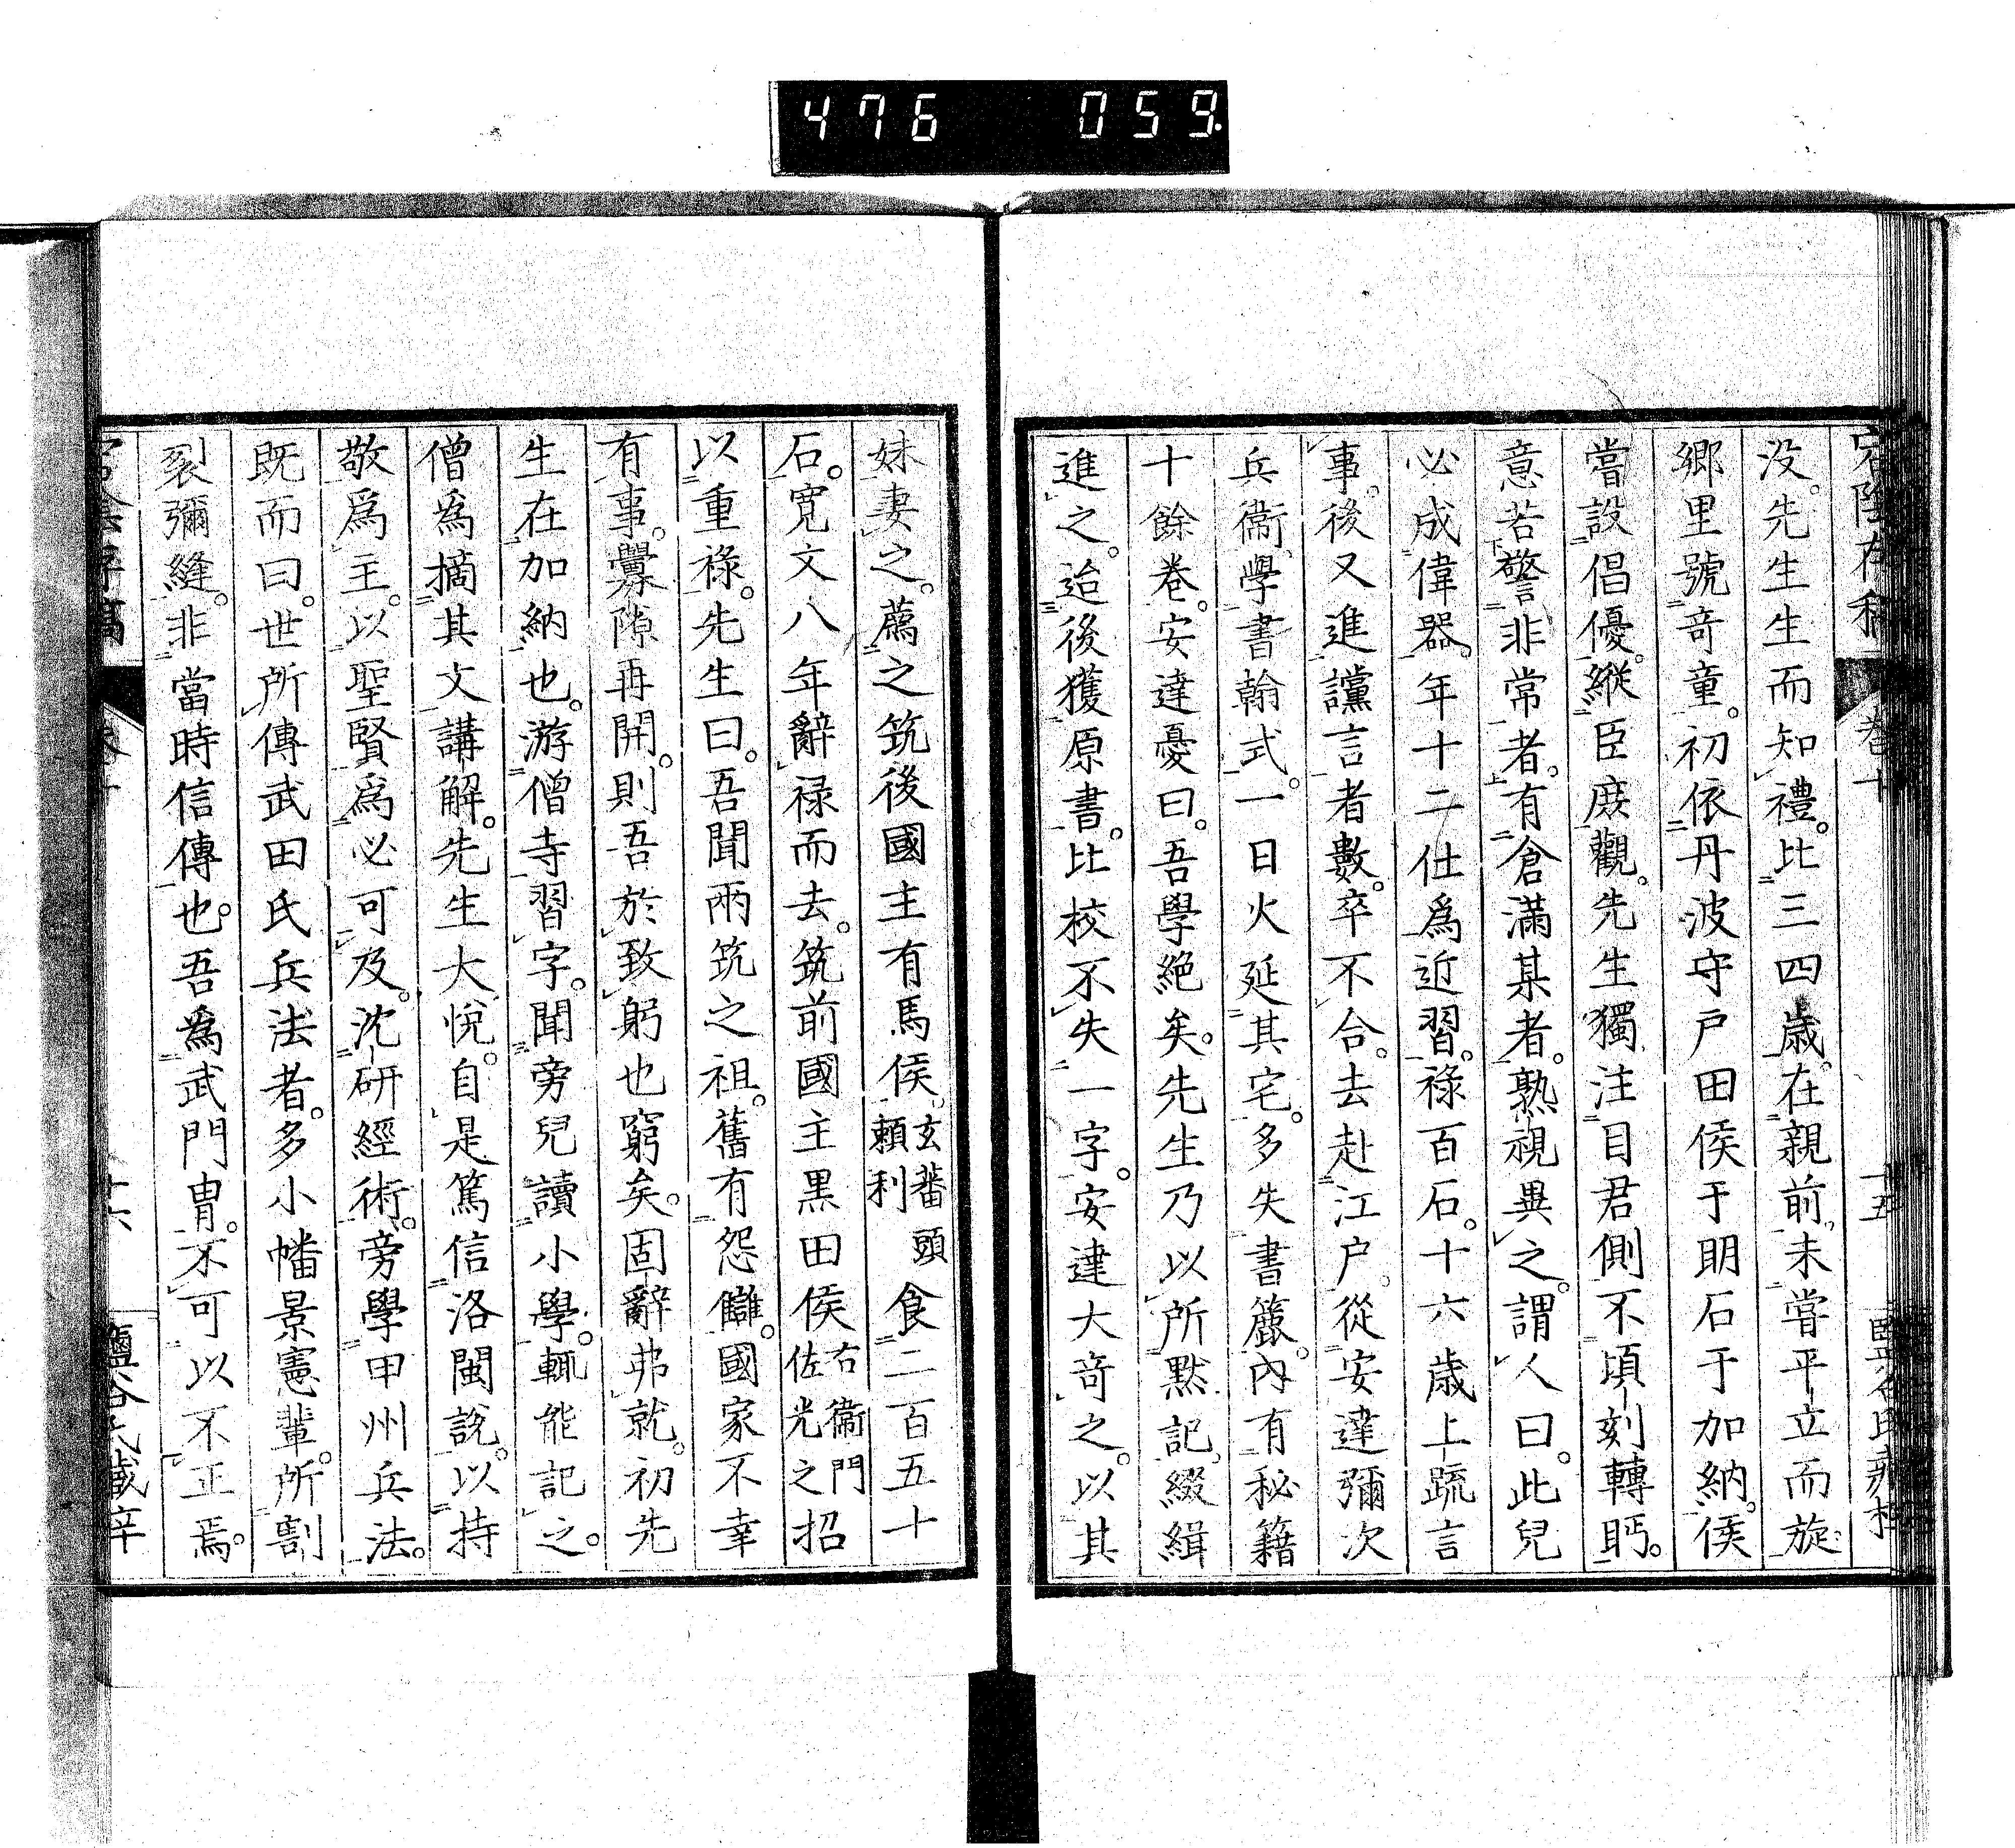 476 059.
宕陰存稿 卷十 十五
没。先生生而知禮。比三四歲。在親前。未嘗平立而旋。
鄉里號奇童。初依丹波守戸田侯于明石于加納。侯
嘗設倡優。縱臣庶觀。先生獨注目君側不頃刻轉眄。
意若警非常者。有倉滿某者。熟視異之。謂人曰。此兒
必成偉器。年十二仕爲近習。祿百石。十六歲上疏言
事。後又進讜言者數。卒不合。去赴江戸。從安達彌次
兵衞學書翰式。一日火延其宅。多失書簏。內有秘籍
十餘卷。安達憂曰。吾學絕矣。先生乃以所默記綴緝
進之。迨後獲原書。比校不失一字。安達大奇之。以其
妹妻之。薦之筑後國主有馬侯 玄蕃頭賴利 食二百五十
石。寬文八年辭祿而去。筑前國主黑田侯 右衞門佐光之 招
以重祿。先生曰。吾聞兩筑之祖。舊有怨讎。國家不幸
有事。釁隙再開。則吾於致躬也窮矣。固辭弗就。初先
生在加納也。游僧寺習字。聞旁兒讀小學。輒能記之。
僧爲摘其文講解。先生大悅。自是篤信洛閩說。以持
敬爲主。以聖賢爲必可及。沈研經術。旁學甲州兵法。
既而曰。世所傳武田氏兵法者。多小幡景憲輩。所割
裂彌縫。非當時信傳也。吾爲武門冑。不可以不正焉。
宕陰存稿 卷十 十六 鹽谷氏藏梓